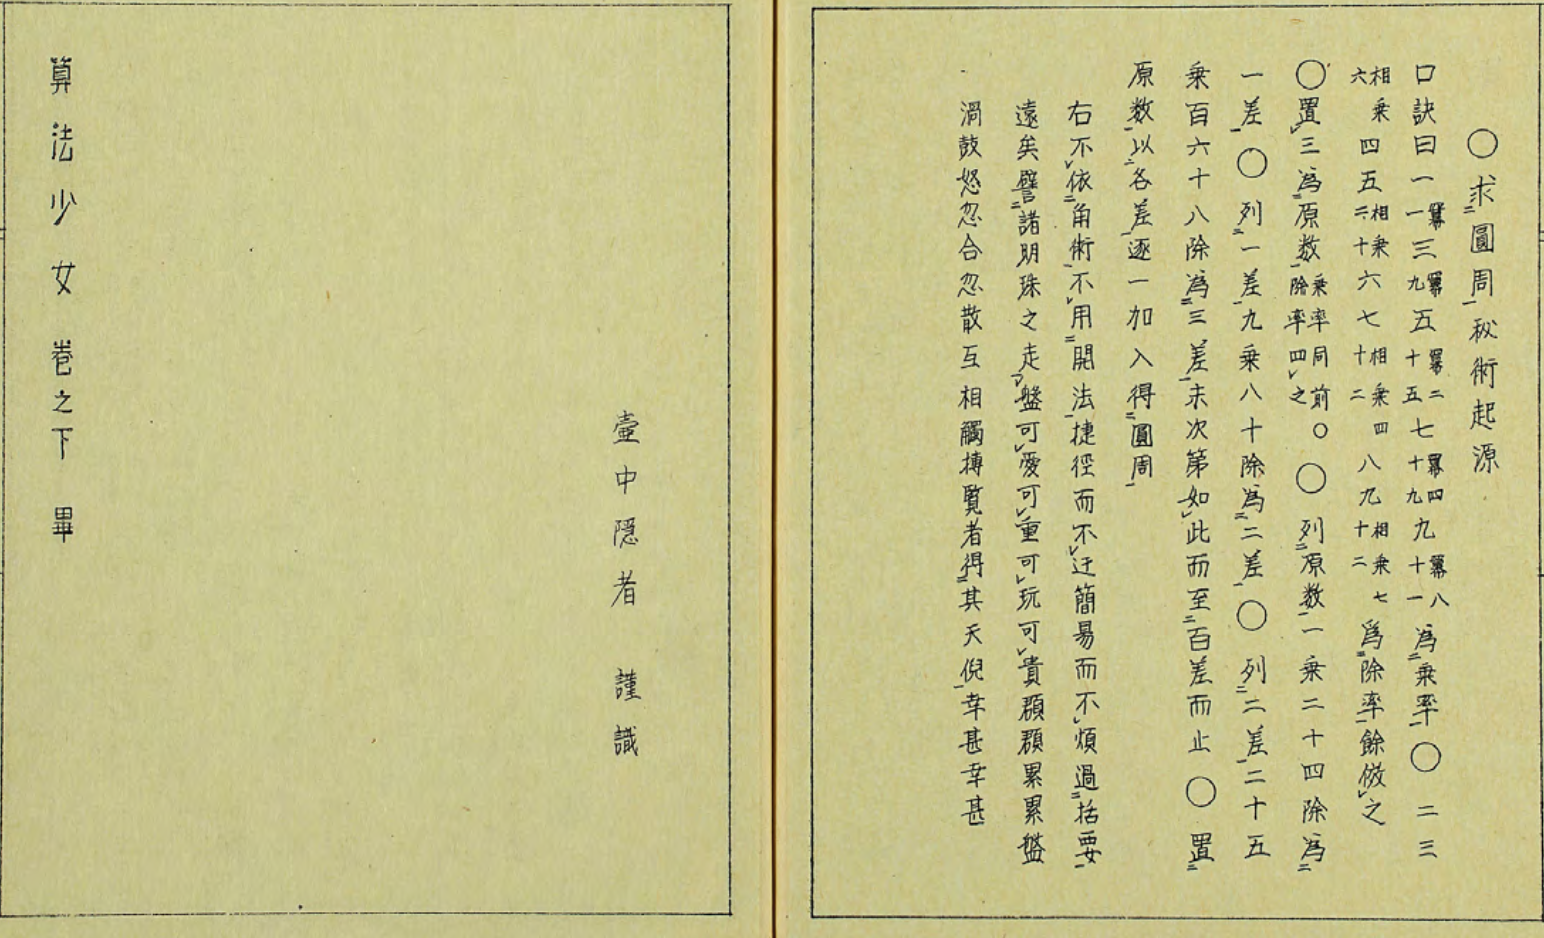 〇求圓周秘術起源
口訣曰一一冪一三冪九五冪二十五七冪四十九九冪八十一為乗率〇二三
相乗六四五相乗二十六七相乗四十二八九相乗七十二爲除率餘倣之
〇置三為原数乗率同前除率四之〇〇列原数一乗二十四除為
一差〇列一差九乗八十除為二差〇列二差二十五
乗百六十八除為三差末次第如此而至百差而止〇置
原数以各差逐一加入得圓周
右不依角術不用開法捷徑而不迂簡易而不煩過括要
遠矣譬諸明珠之走盤可愛可重可玩可貴顆顆累累盤
渦鼓怒忽合忽散互相觸摶覧者得其天倪幸甚幸甚
壷中隠者 謹識
算法少女 巻之下 畢